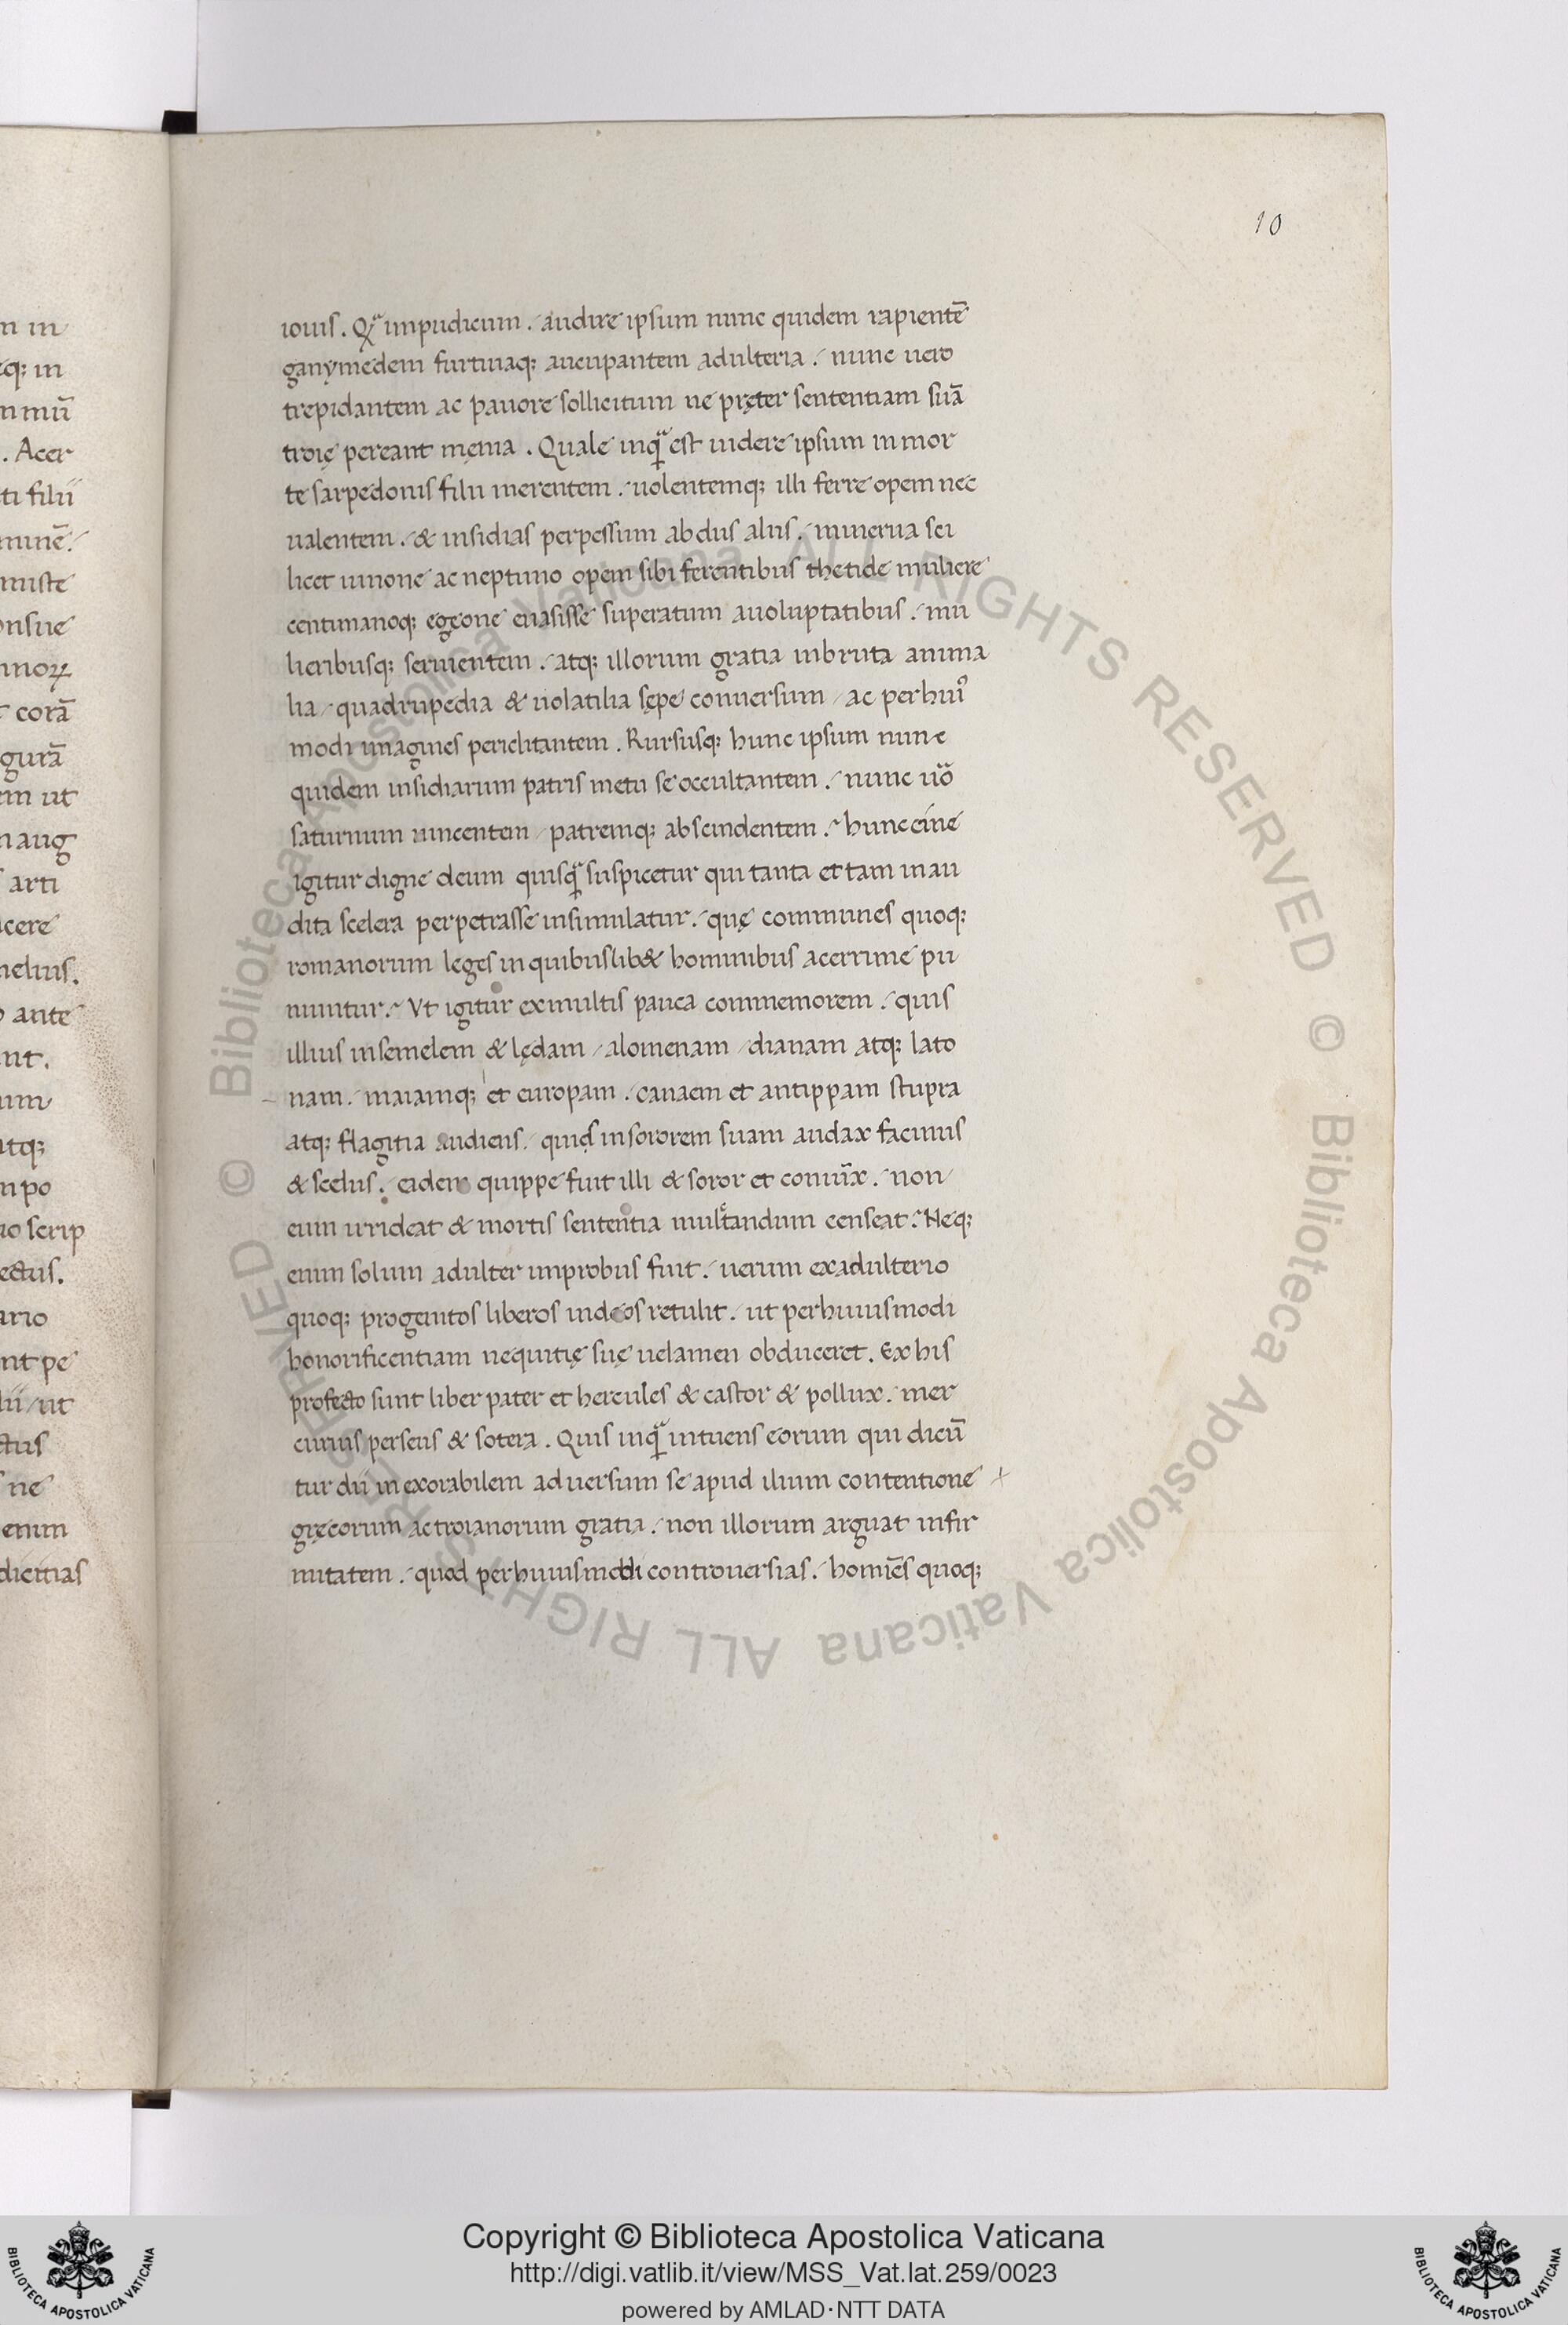 10
iouis. Qᷓ impudicum. audire ipsum nunc quidem rapientē
ganymedem furtiuaq; aucupantem adulteria. nunc uero
trepidantem ac pauore sollicitum ne pręter sententiam suā
troię pereant męnia. Quale inqᷓ est uidere ipsum in mor
te sarpedonis filii merentem. uolentemq; illi ferre opem nec
ualentem. & insidias perpessum ab diis aliis. minerua sci
licet iunone ac neptuno opem sibi ferentibus thetide muliere
centimanoq; egęone euasisse superatum a uoluptatibus. mu
lieribusq; seruientem. atq; illorum gratia in bruta anima
lia quadrupedia & uolatilia sępe conuersum ac per huiꝰ
modi imagines periclitantem. Rursusq; hunc ipsum nunc
quidem insidiarum patris metu se occultantem. nunc uō
saturnum uincentem patremq; abscindentem. hunccine
igitur digne deum quisqᷓ suspicetur qui tanta et tam inau
dita scelera perpetrasse insimulatur. quę communes quoq;
romanorum leges in quibuslib& hominibus acerrime pu
niuntur. Vt igitur ex multis pauca commemorem. quis
illius in semelem & lędam alomenam dianam atq; lato
nam. maiamq; et europam. canaem et antippam stupra
atq; flagitia audiens. quisq; in sororem suam audax facinus
& scelus. eidem quippe fuit illi & soror et coniūx. non
eum irrideat & mortis sententia multandum censeat. Neq;
enim solum adulter improbus fuit. uerum ex adulterio
quoq; progenitos liberos in deos retulit. ut per huiusmodi
honorificentiam nequitię suę uelamen obduceret. Ex his
profecto sunt liber pater et hercules & castor & pollux. mer
curius perseus & sotera. Quis inqᷓ intuens eorum qui dicū
tur dii inexorabilem aduersum se apud ilium contentione
gręcorum ac troianorum gratia. non illorum arguat infir
mitatem. quod per huiusmodi controuersias. homīes quoq;
m in
q; in
n mū
. Acer
ti filii
minē.
miste
onsue
t corā
gurā
em ut
n aug
arti
cere
melius.
o ante
nt.
um
atq;
n po
no scrip
ectus.
ario
nt pe
lii ut
ctus
ne
enim
dicitias
© Biblioteca Apostolica Vaticana ALL RIGHTS RESERVED © Biblioteca Apostolica Vaticana ALL RIGHTS RESERVED
BIBLIOTECA APOSTOLICA VATICANA
Copyright © Biblioteca Apostolica Vaticana
http://digi.vatlib.it/view/MSS_Vat.lat.259/0023
powered by AMLAD·NTT DATA
BIBLIOTECA APOSTOLICA VATICANA